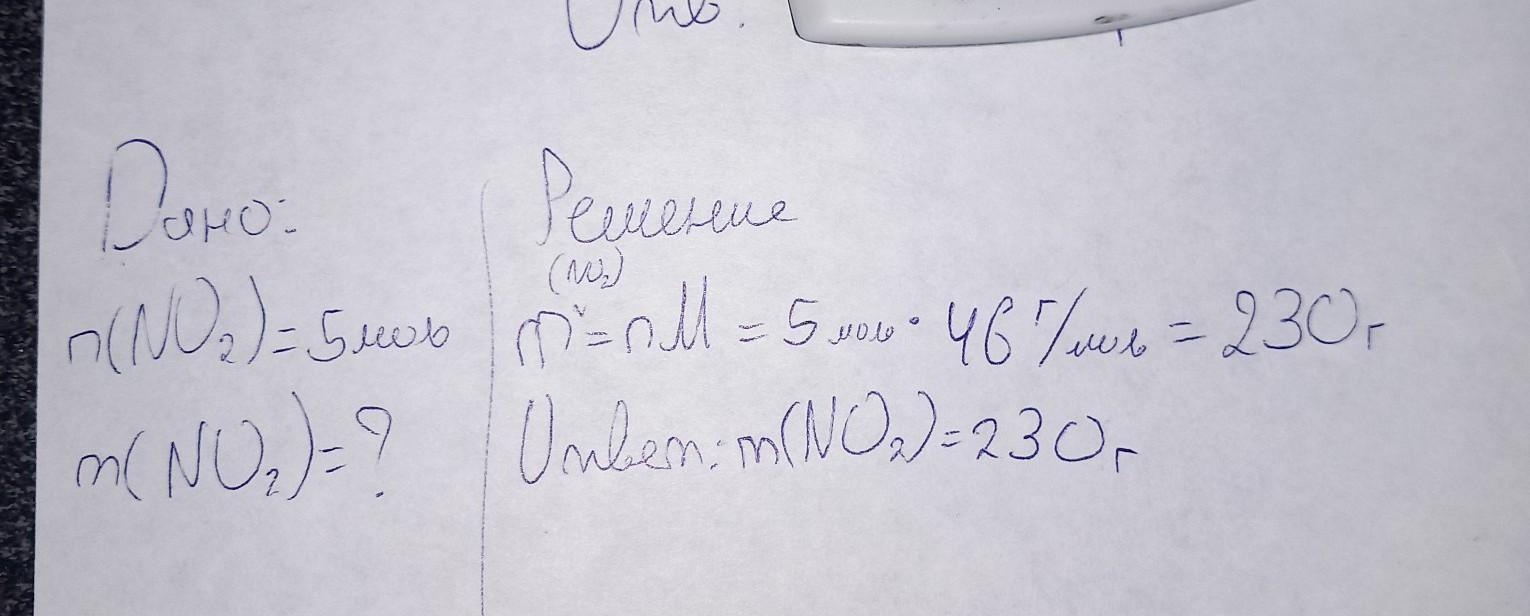 Отв.
Дано:
n(NO₂)=5моль
m(NO₂)=?
Решение
(NO₂)
m = nM = 5 моль · 46 г/моль = 230г
Ответ: m(NO₂)=230г